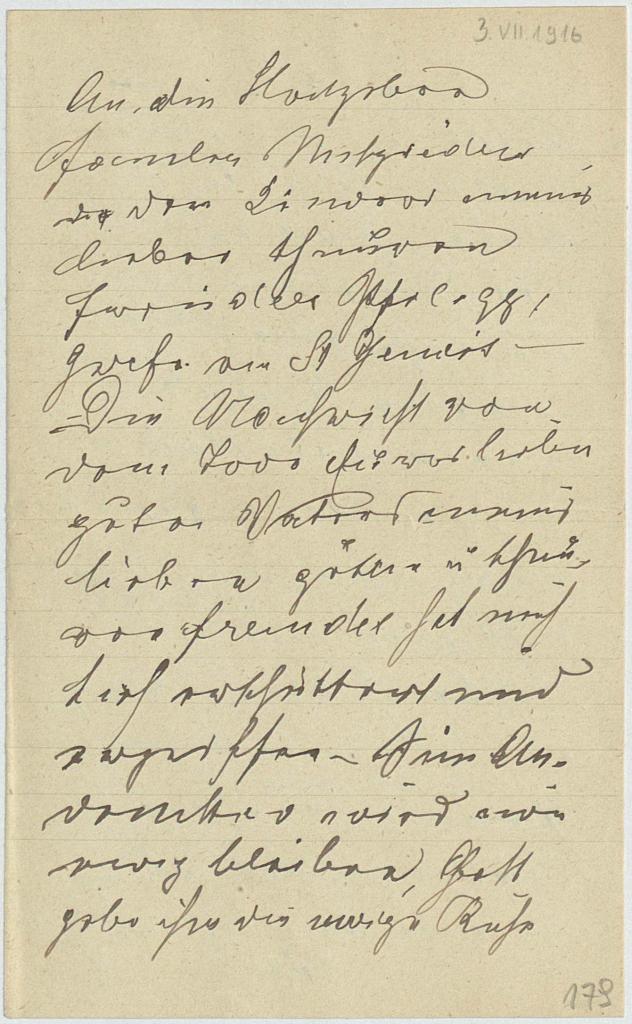 3. VII. 1916
An die
Familien Mitglieder
der Kinder meines
lieben theuren
Freundes
von St Genois —
Die Nachricht von
dem Tode lieben
guten Vaters meines
lieben guten u theu-
ren Freundes hat mich
tief erschüttert und
ergriffen – Sein An-
denken wird mir
ewig bleiben, Gott
gebe ihm die ewige Ruhe
179